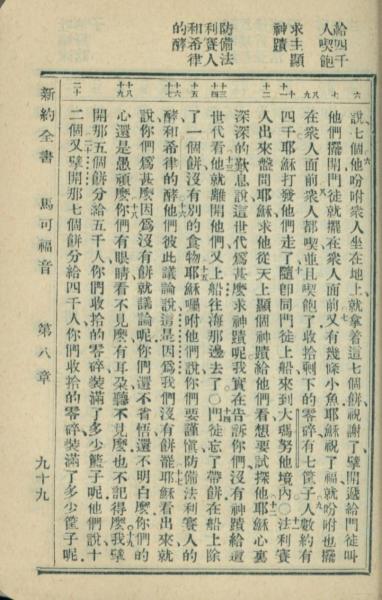 給四千
人喫飽
求主顯
神蹟
防備法
利賽人
和希律
的酵
說七個他吩咐衆人坐在地上就拿着這七個餅祝謝了擘開遞給門徒叫
他們擺開門徒就擺在衆人面前又有幾條小魚耶穌祝了福就吩咐也擺
在衆人面前衆人都喫並且喫飽了收拾剩下的零碎有七筐子人數約有
四千耶穌打發他們走了隨卽同門徒上船來到大瑪努他境內○法利賽
人出來盤問耶穌求他從天上顯個神蹟給他們看想要試探他耶穌心裏
深深的歎息說這世代爲甚麼求神蹟呢我實在告訴你們沒有神蹟給這
世代看他就離開他們又上船往海那邊去了○門徒忘了帶餅在船上除
了一個餅沒有別的食物耶穌囑咐他們說你們要謹愼防備法利賽人的
酵和希律的酵他們彼此議論說這是因爲我們沒有餅罷耶穌看出來就
說你們爲甚麼因爲沒有餅就議論呢你們還不省悟還不明白麼你們的
心還是愚頑麼你們有眼睛看不見麼有耳朶聽不見麼也不記得麼我擘
開那五個餅分給五千人你們收拾的零碎裝滿了多少籃子呢他們說十
二個又擘開那七個餅分給四千人你們收拾的零碎裝滿了多少筐子呢
新約全書 馬可福音 第八章 九十九